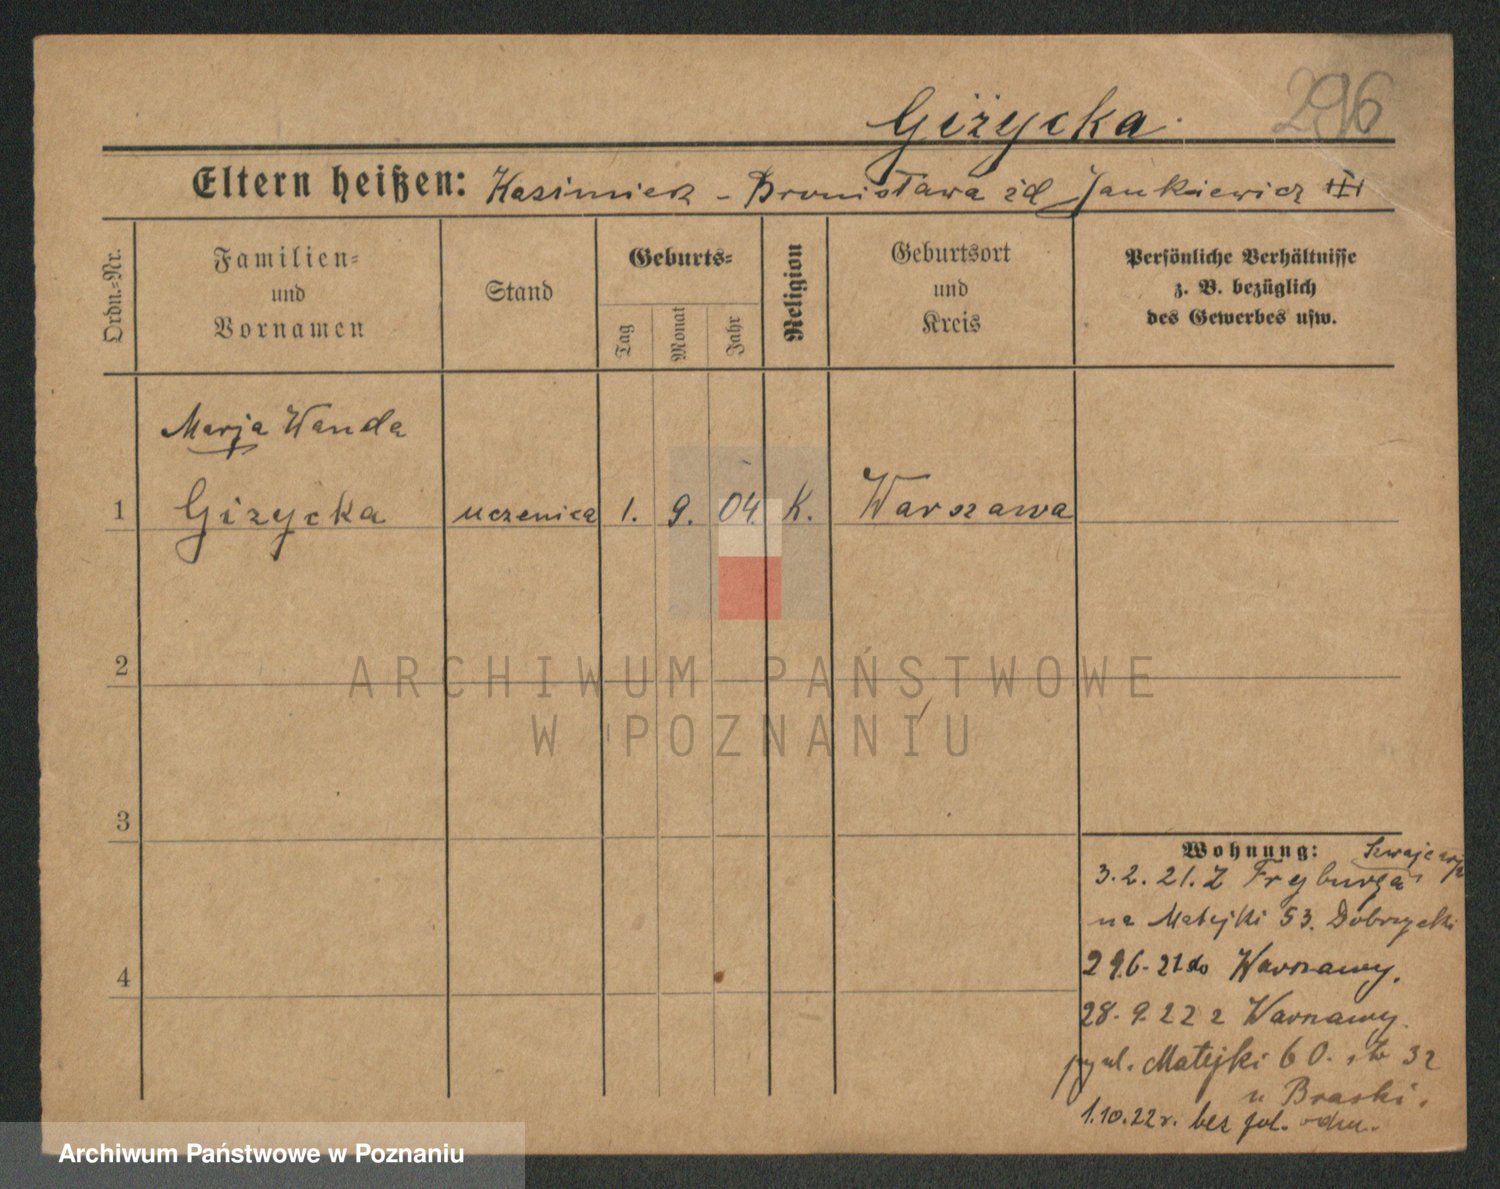 296
Giżycka
Eltern heißen: Kazimierz - Bronisława zd Jankiewicz
Ordn.=Nr.
Familien=
und
Vornamen
Stand
Geburts=
Tag
Monat
Jahr
Religion
Geburtsort
und
Kreis
Persönliche Verhältnisse
z. B. bezüglich
des Gewerbes usw.
Marja Wanda
1 Giżycka uczenica 1. 9. 04. K. Warszawa
2
3
4
Wohnung: Szwajcarja
3.2.21. Z Fryburga
na Matejki 53. Dobrzycki
29.6.21 do Warszawy.
28.9.22 z Warszawy
ul. Matejki 60.
u Braski.
1.10.22 r. bez
ARCHIWUM PAŃSTWOWE
W POZNANIU
Archiwum Państwowe w Poznaniu